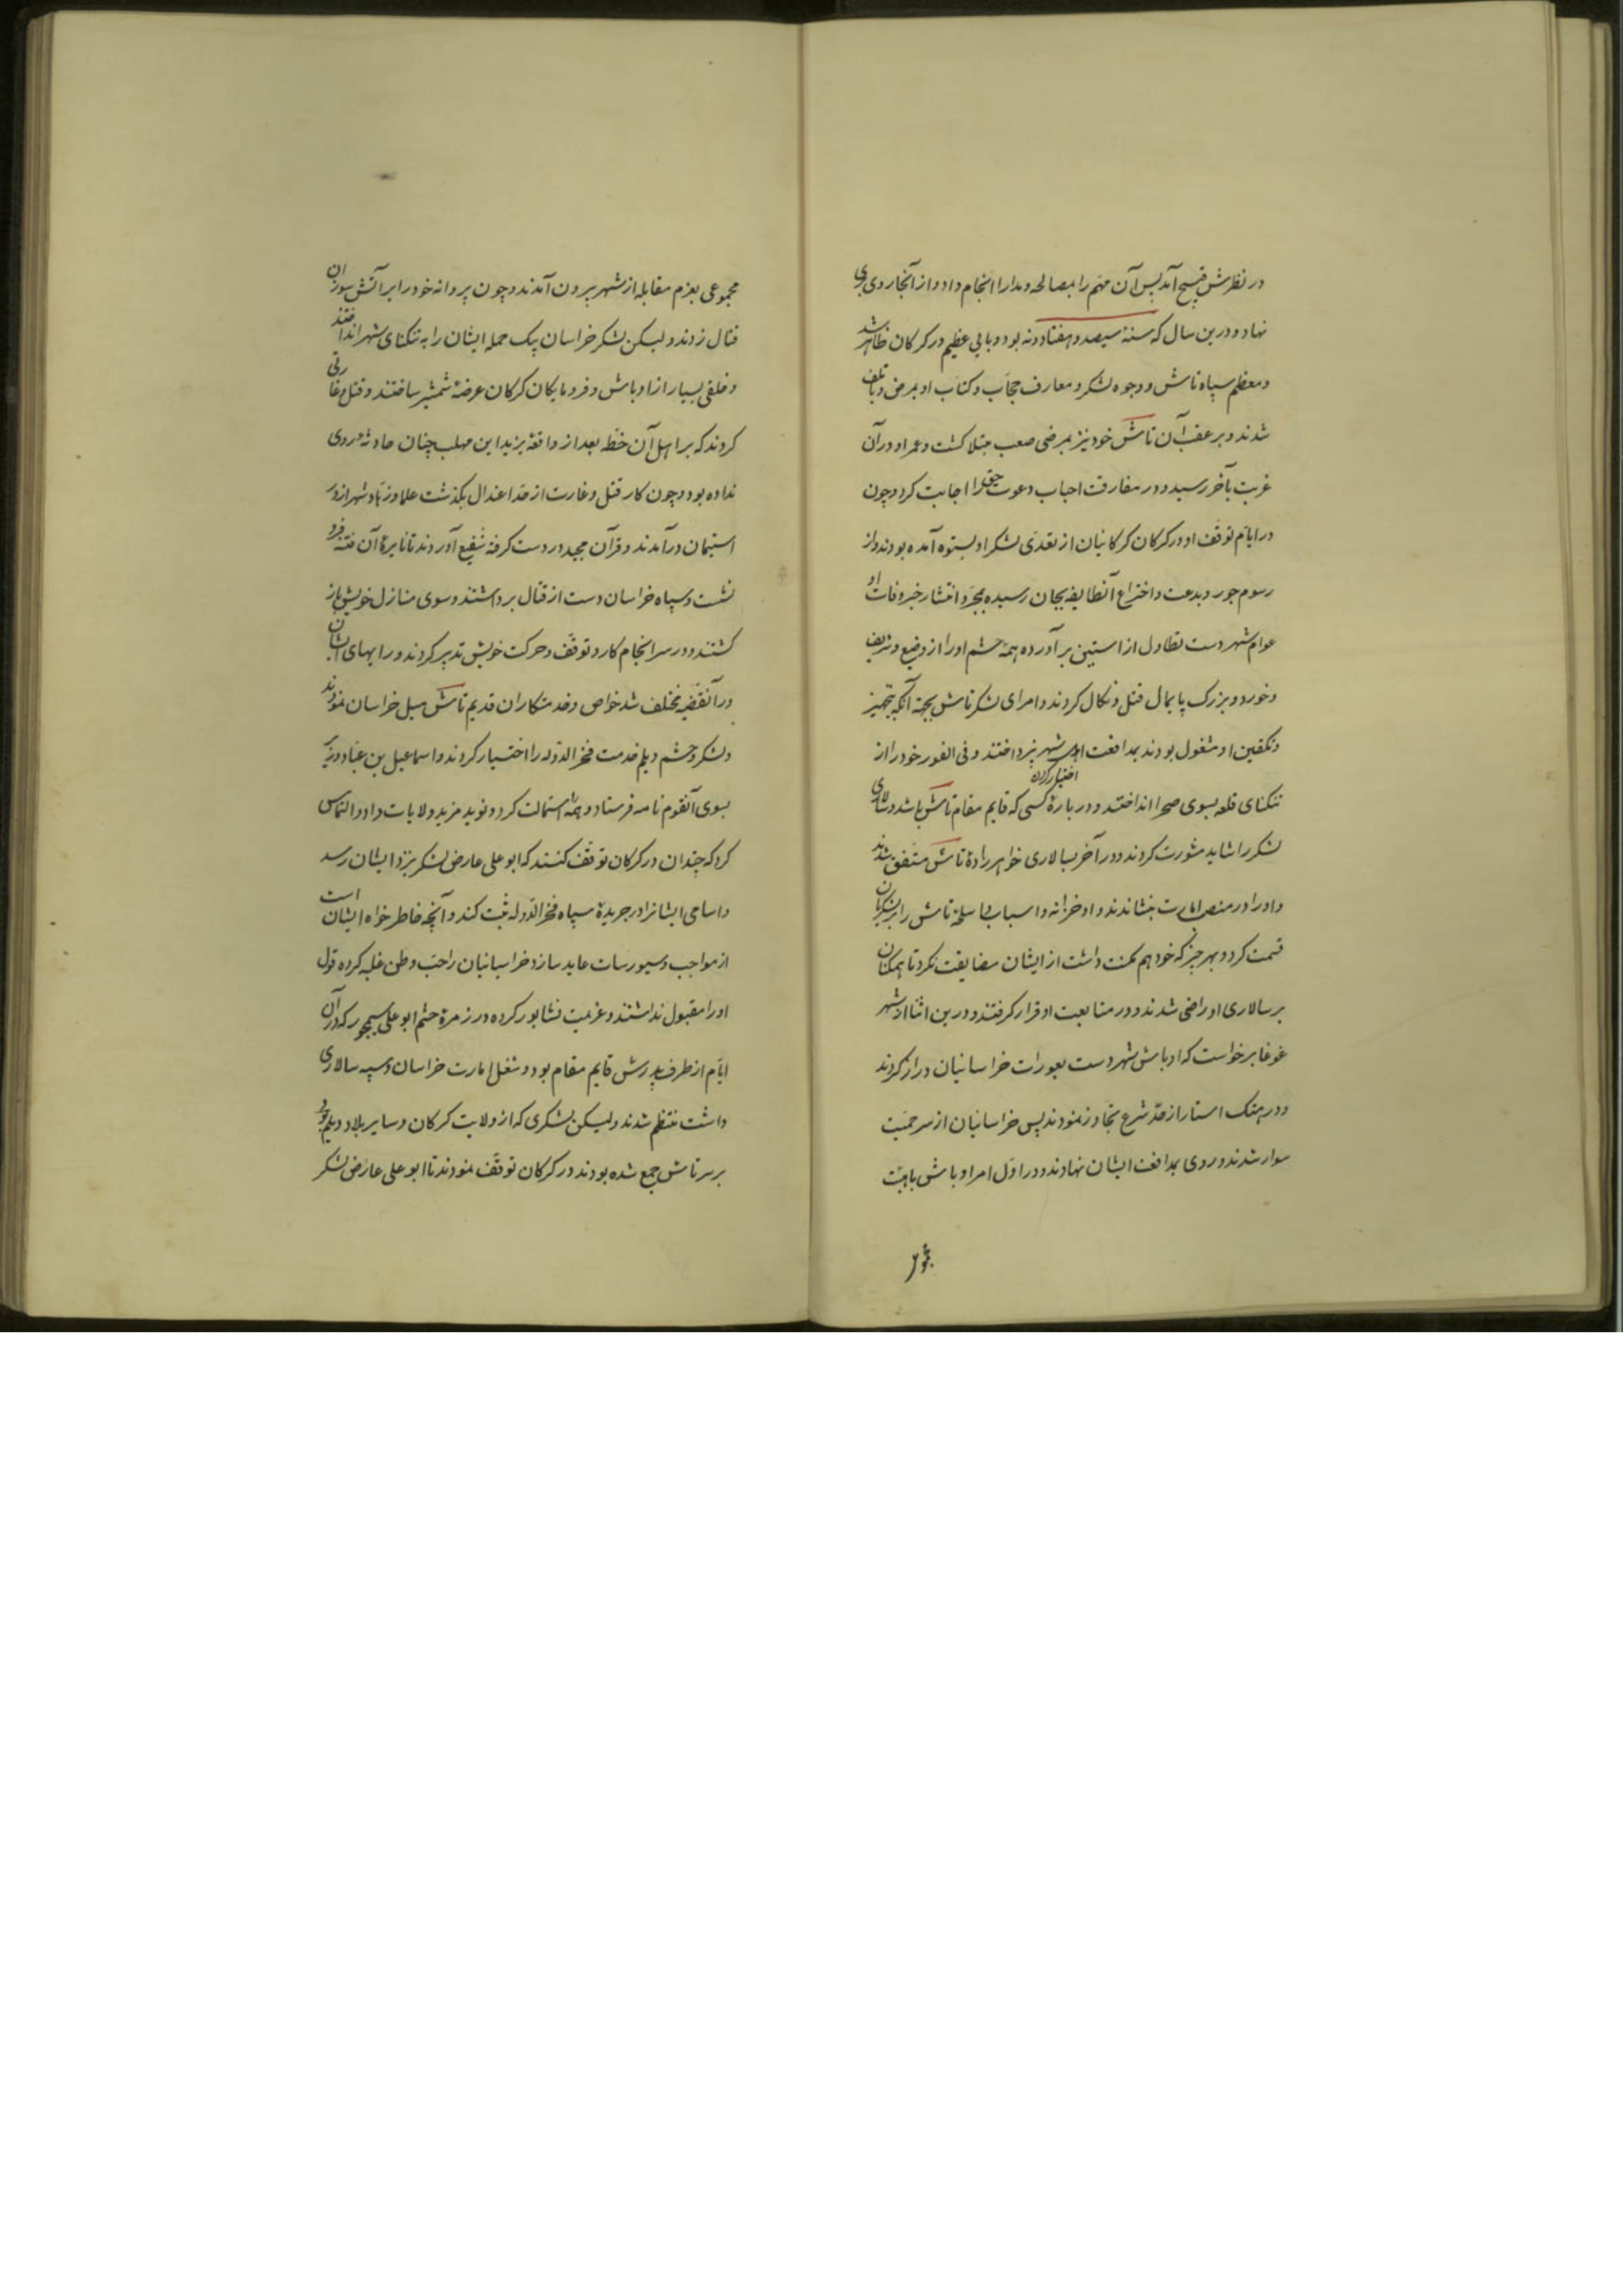 در نظرش قبیح آمد پس آن مهم را بمصالحه و مدارا انجام داد و از آنجا روی بری
نهاد و درین سال که سنهٔ سیصد و هفتاد و نه بود وبایی عظیم در کرکان ظاهر شد
و معظم سپاه تاش و وجوه لشکر و معارف حجّاب و کتّاب او بمرض وبا تلف
شدند و بر عقب آن تاش خود نیز بمرضی صعب مبتلا کشت و عمر او در آن
غربت بآخر رسید و در مفارقت احباب دعوت حق را اجابت کرد و چون
در ایّام توقّف او در کرکان کرکانیان از تعدّی لشکر او بستوه آمده بودند و از
رسوم جور و بدعت و اختراع آنطایفه بجان رسیده بمجرّد انتشار خبر وفات او
عوام شهر دست تطاول از استین برآورده همهٔ حشم او را از وضیع و شریف
و خورد و بزرک پایمال قتل و نکال کردند و امرای لشکر تاش بجهة آنکه بتجهیز
و تکفین او مشغول بودند بمدافعت اهل شهر نپرداختند و فی الفور خود را از
تنکنای قلعه بسوی صحرا انداختند و در بارهٔ اختیار کردن کسی که قایم مقام تاش باشد و سالاری
لشکر را شاید مشورت کردند و در آخر بسالاری خواهرزادهٔ تاش متفق شدند
و او را در منصب امارت بنشاندند و او خزانه و اسباب و اسلحهٔ تاش را بر لشکریان
قسمت کرد و بهر چیز که خود هم مکنت داشت از ایشان مضایقت نکرد تا همکنان
بر سالاری او راضی شدند و در متابعت او قرار کرفتند و درین اثنا از شهر
غوغا برخواست که اوباش شهر دست بعورات خراسانیان دراز کردند
و در هتک استار از حدّ شرع تجاوز نمودند پس خراسانیان از سر حمیّت
سوار شدند و روی بمدافعت ایشان نهادند و در اوّل امر اوباش باهیئت
مجموعی بعزم مقابله از شهر بیرون آمدند و چون پروانه خود را بر آتش سوزان
قتال زدند و لیکن لشکر خراسان بیک حمله ایشان را به تنکنای شهر انداختند
و خلقی بسیار از اوباش و فرومایکان کرکان عرضهٔ شمشیر ساختند و قتل و غارتی
کردند که بر اهل آن خطّه بعد از واقعهٔ یزید ابن مهلب چنان حادثهٔ روی
نداده بود و چون کار قتل و غارت از حدّ اعتدال بکذشت علما و زهّاد شهر از در
استیمان درآمدند و قرآن مجید در دست کرفته شفیع آوردند تا نایرهٔ آن فتنه فرو
نشست و سپاه خراسان دست از قتال برداشتند و سوی منازل خویش باز
کشتند و در سرانجام کار و توقّف و حرکت خویش تدبیر کردند و رایهای ایشان
در آنقضیه مختلف شد خواص و خدمتکاران قدیم تاش میل خراسان نمودند
و لشکر و حشم دیلم خدمت فخر الدوله را اختیار کردند و اسماعیل بن عبّاد وزیر
بسوی آنقوم نامه فرستاد و همه را استمالت کرد و نوید مزید ولایات داد و التماس
کرد که چندان در کرکان توقّف کنند که ابو علی عارض لشکر بنزد ایشان رسد
و اسامی ایشانرا در جریدهٔ سپاه فخر الدّوله ثبت کند و آنچه خاطرخواه ایشان است
از مواجب و سیورسات عاید سازد خراسانیان را حبّ وطن غلبه کرده قول
او را مقبول نداشتند و عزیمت نشابور کرده در زمرهٔ حشم ابو علی سیمجور که در آن
ایّام از طرف پدرش قایم مقام بود و شغل امارت خراسان و سپه سالاری
داشت منتظم شدند و لیکن لشکری که از ولایت کرکان و سایر بلاد دیلم بود
بر سر تاش جمع شده بودند در کرکان توقّف نمودند تا ابو علی عارض لشکر